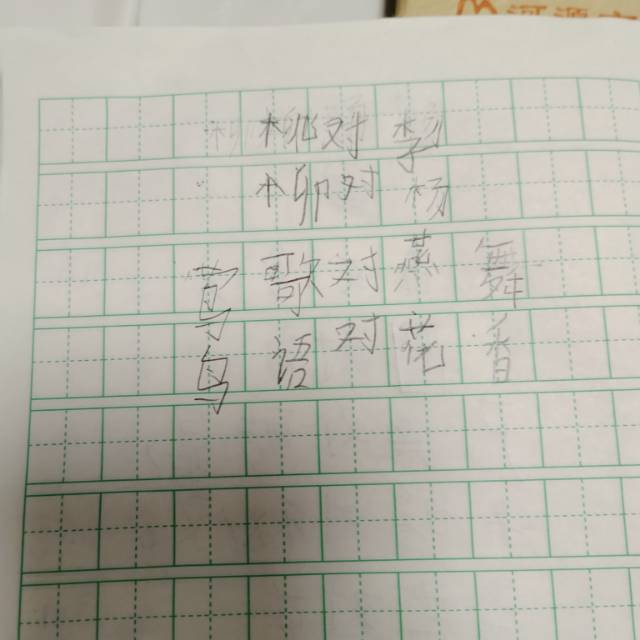 桃对李
柳对杨
莺歌对燕舞
鸟语对花香